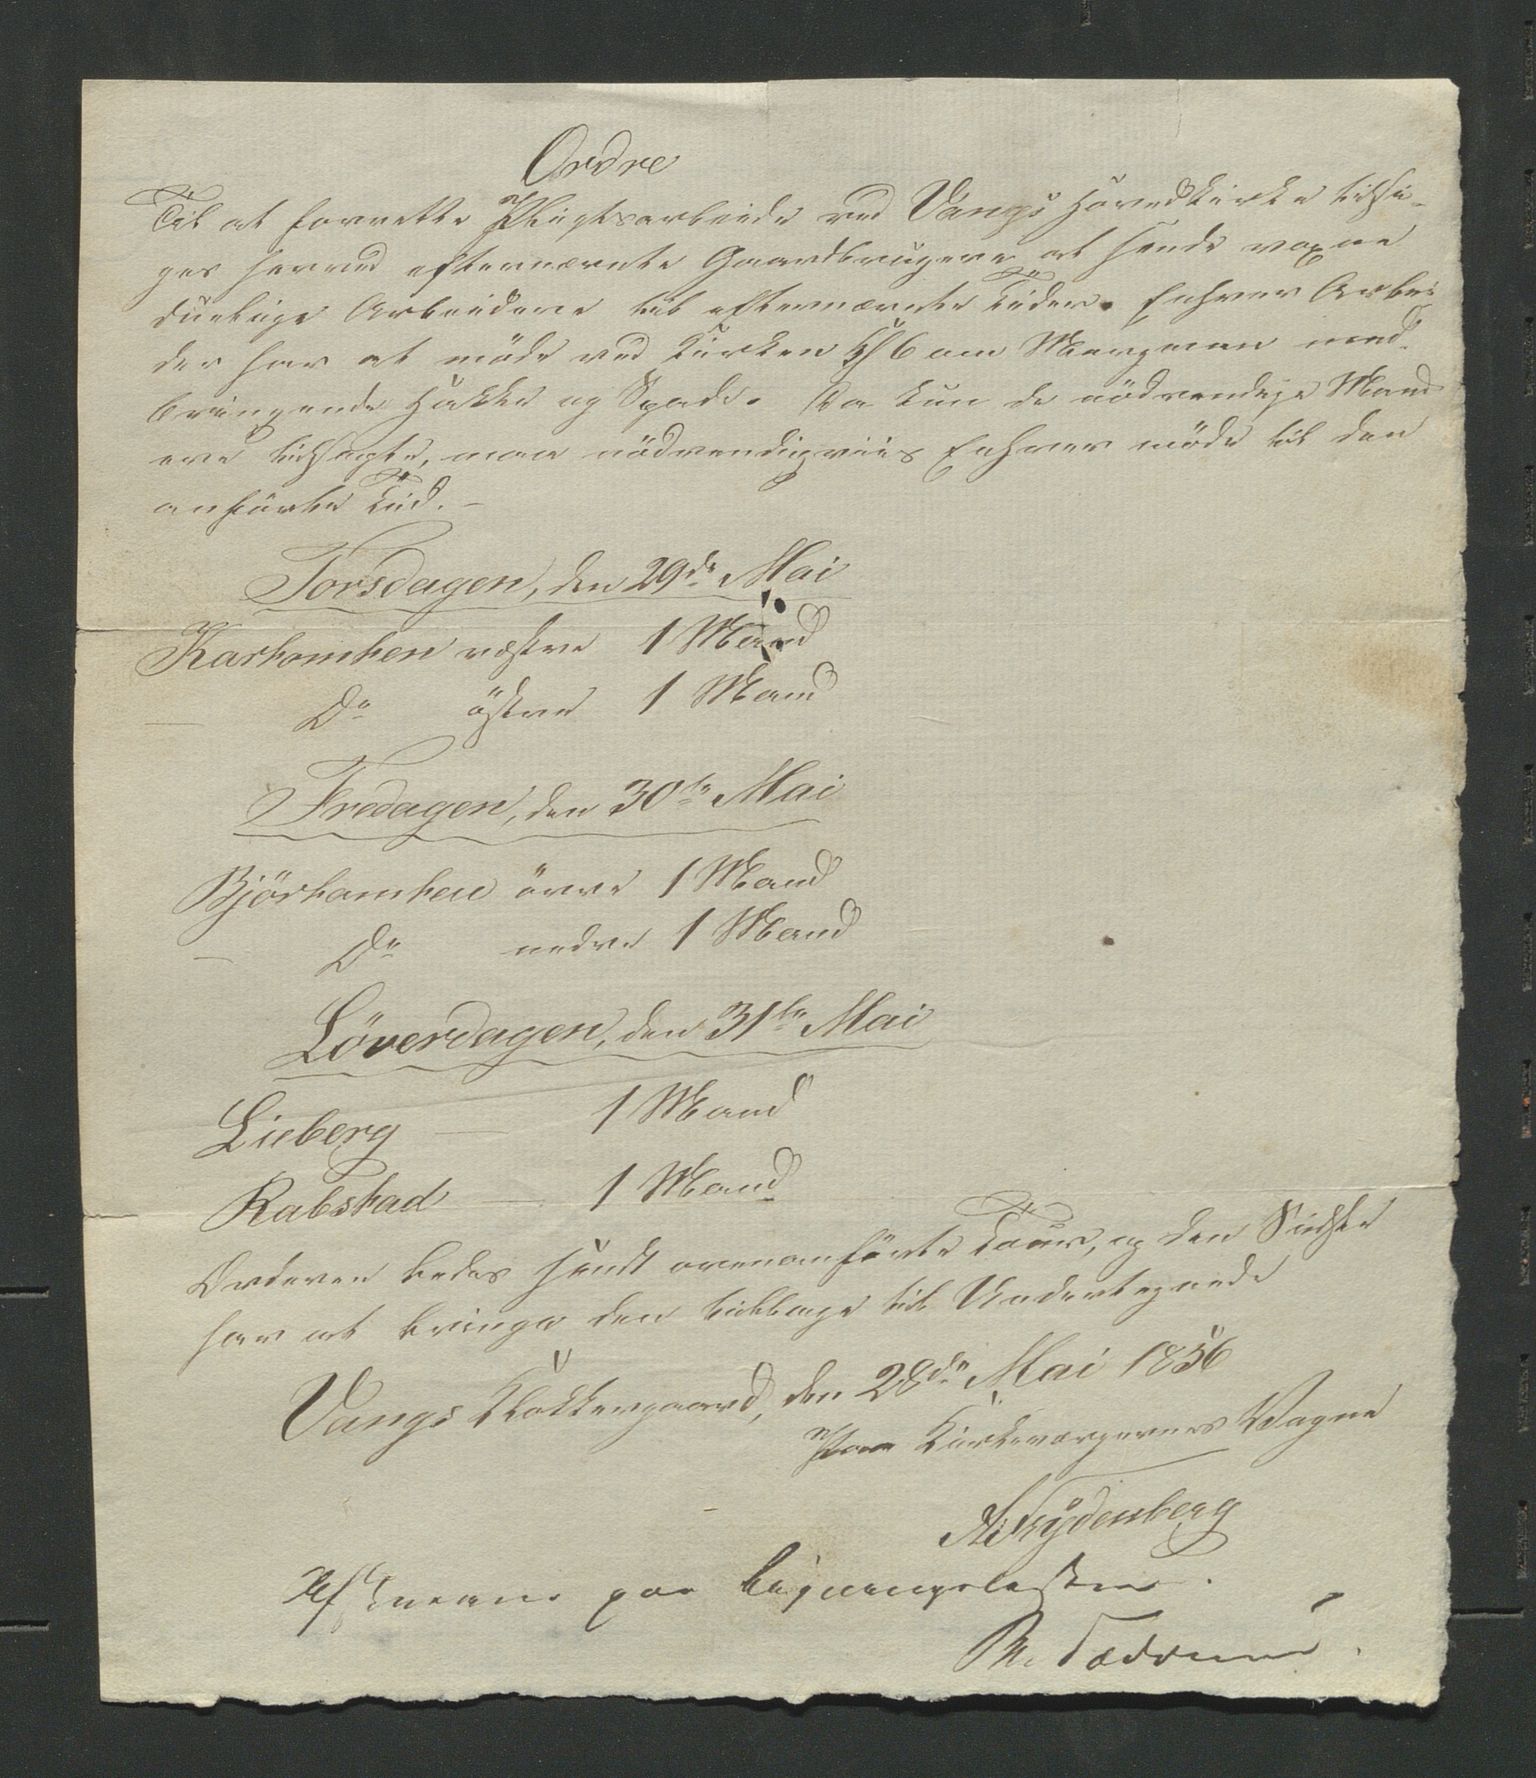 Ordre
Til at forrette Pligtsarbeide ved Vangs Hovedkirke tilsi-
ges herved efternævnte Gaardbrugere at sende voxne
duelige Arbeidere til efternævnte Tider. Enhver Arbei-
der har at møde ved Kirken Kl 6 om Morgenen med-
bringende Hakke og Spade. Da kun de nødvendige Mand
ere tilsagte, maa nødvendigviis Enhver møde til den
anførte Tid. -
Torsdagen, den 29de Mai
Karhomhen vestre 1 Mand
Do østre 1 Mand
Fredagen, den 30te Mai
Bjørhomhen øvre 1 Mand
Do nedre 1 Mand
Löverdagen, den 31te Mai
Lieberg — 1 Mand
Rabstad — 1 Mand
Orderen bedes sendt ovenanførte Tour, og den Sidste
har at bringe den tilbage til Undertegnede
Vangs Klokkergaard, den 28de Mai 1856
Paa Kirkeværgernes Vegne
A. Frydenberg